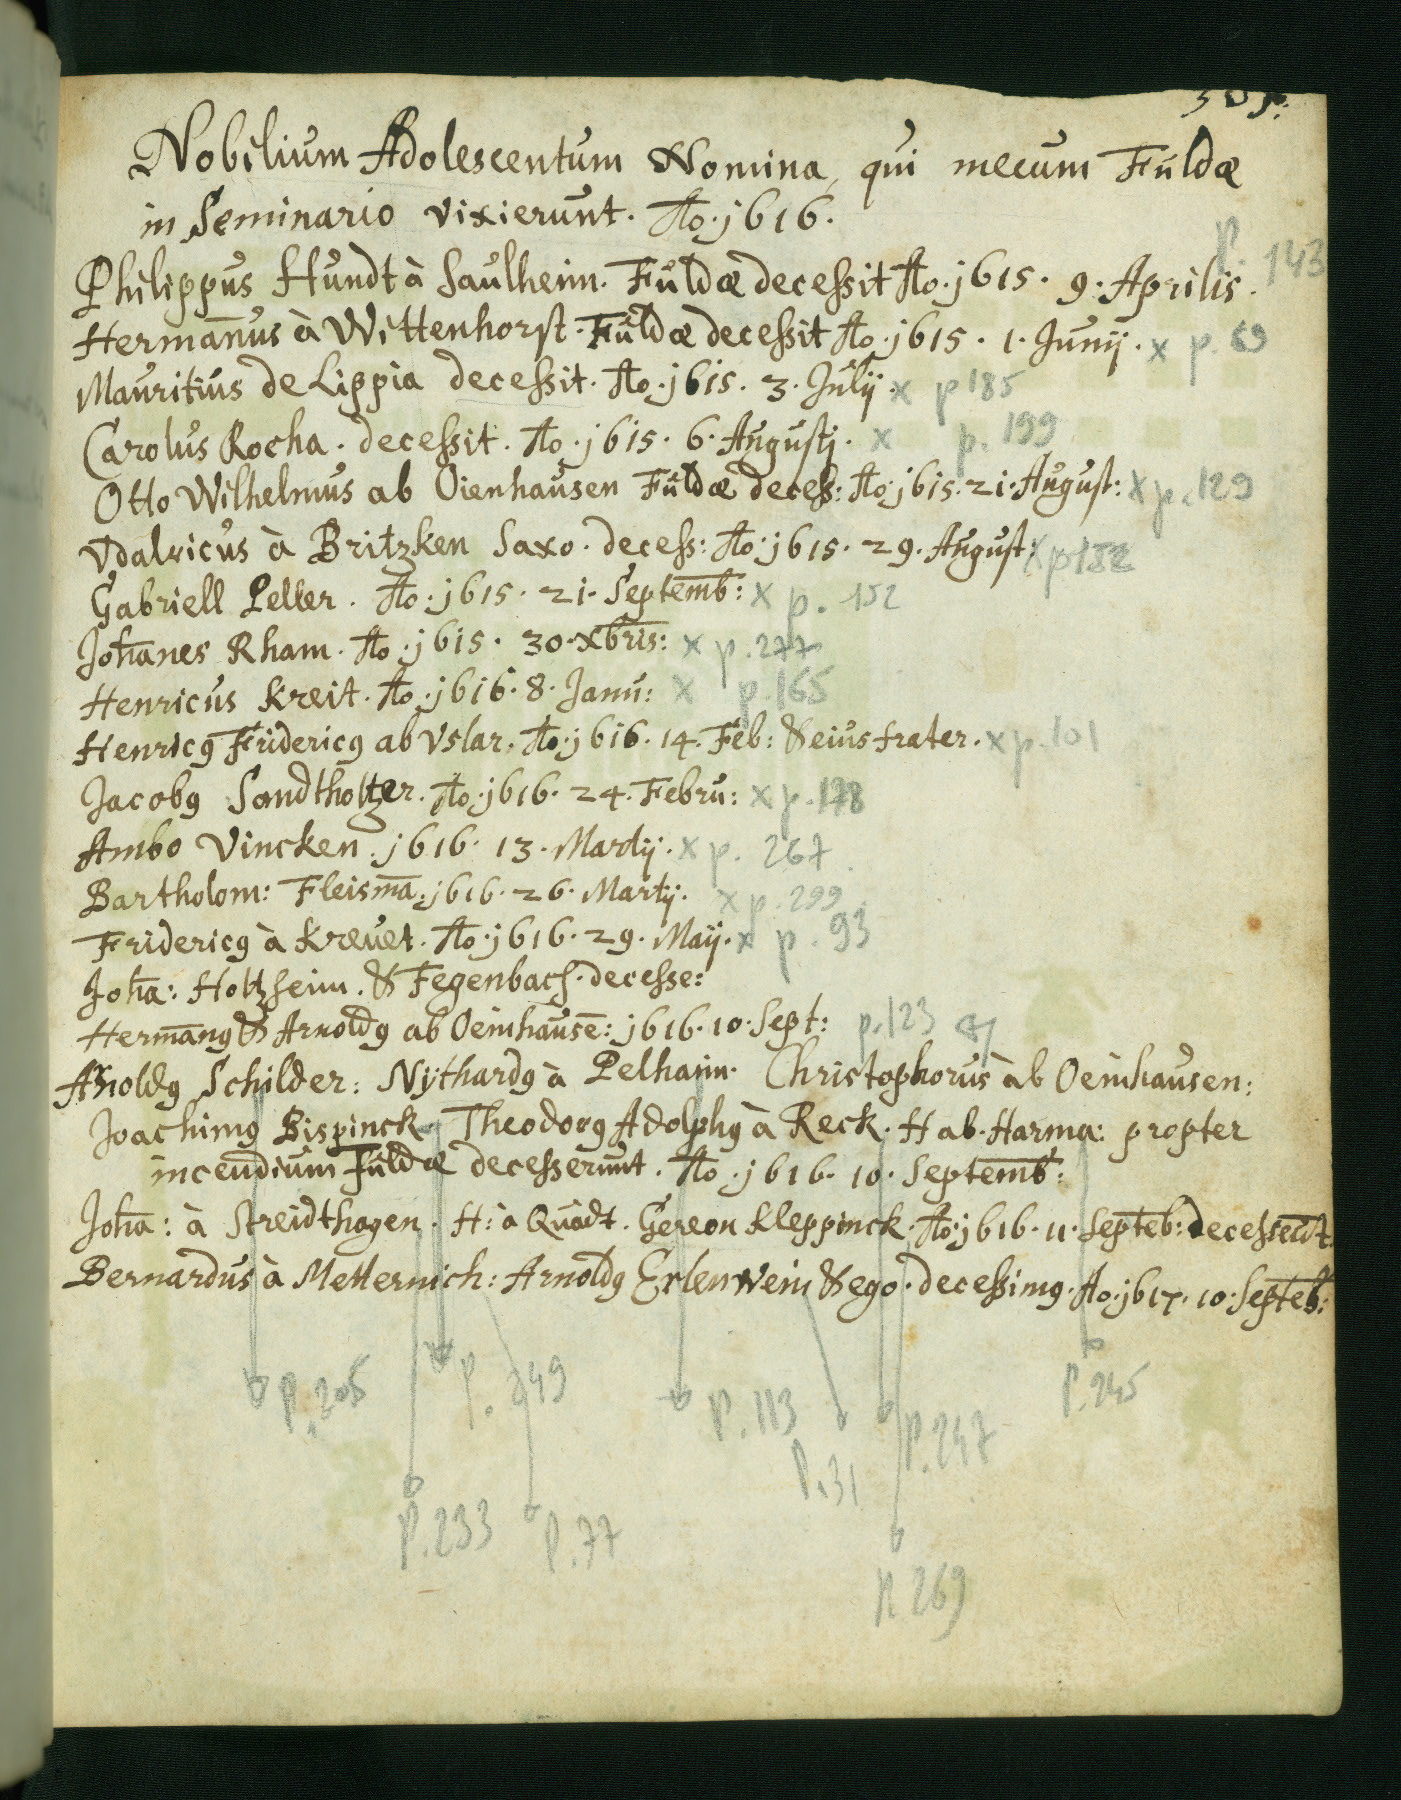 Nobilium Adolescentum Nomina, qui mecum Fuldæ
in Seminario vixierunt. Ao. j616.
Philippus Hundt à Saulheim. Fuldæ deceßit Ao. j615. 9. Aprilis. p. 143
Hermañus à Wittenhorst. Fuldæ deceßit Ao. j615. 1. Junij. x p. 69
Mauritius de Lippia deceßit. Ao. j615. 3. Julij x p 185
Carolus Rocha. deceßit. Ao. j615. 6. Augustj. x p. 199
Otto Wilhelmus ab Oienhausen Fuldæ deceß: Ao. j615. 21. August: x p. 129
Vdalricus à Britzken Saxo. deceß: Ao. j615. 29. August: x p 182
Gabriell Peller. Ao. j615. 21. Septemb̄: x p. 152
Joh̄anes Rham. Ao. j615. 30. Xbris: x p. 277
Henricus Kreit. Ao. j616. 8. Janu: x p. 165
Henricꝯ Fridericꝯ ab Vslar. Ao. j616. 14. Feb: & eius frater. x p. 101
Jacobꝯ Sandtholtzer. Ao. j616. 24. Febru: x p. 178
Ambo Vincken. j616. 13. Martij. x p. 267
Bartholom: Fleismā: j616. 26. Martij. x p. 299
Fridericꝯ à Kreuet. Ao. j616. 29. Maij. x p. 93
Joh̄a: Holtzheim. & Fegenbach. decesse:
Herman̄ꝯ & Arnoldꝯ ab Oeinhausē: j616. 10. Sept: p. 123
Arnoldꝯ Schilder: Nythardꝯ à Pelhaim. Christophorus àb Oeinhausen:
Joachimꝯ Bispinck Theodorꝯ Adolphꝯ à Reck. H ab. Harma: propter
incendium Fuldæ decesserunt. Ao. j616. 10. Septemb̄:
Joh̄a: à Streidthagen. H: à Quadt. Gereon Kleppinck. Ao. j616. 11. Septeb̄:
Bernardus à Metternich: Arnoldꝯ Erlenwein & ego. deceßimꝯ. Ao. j617. 10. Septeb̄:
p. 205 p. 249 p. 113 p. 245
p. 31 p. 247
p. 233 p. 77
p 269